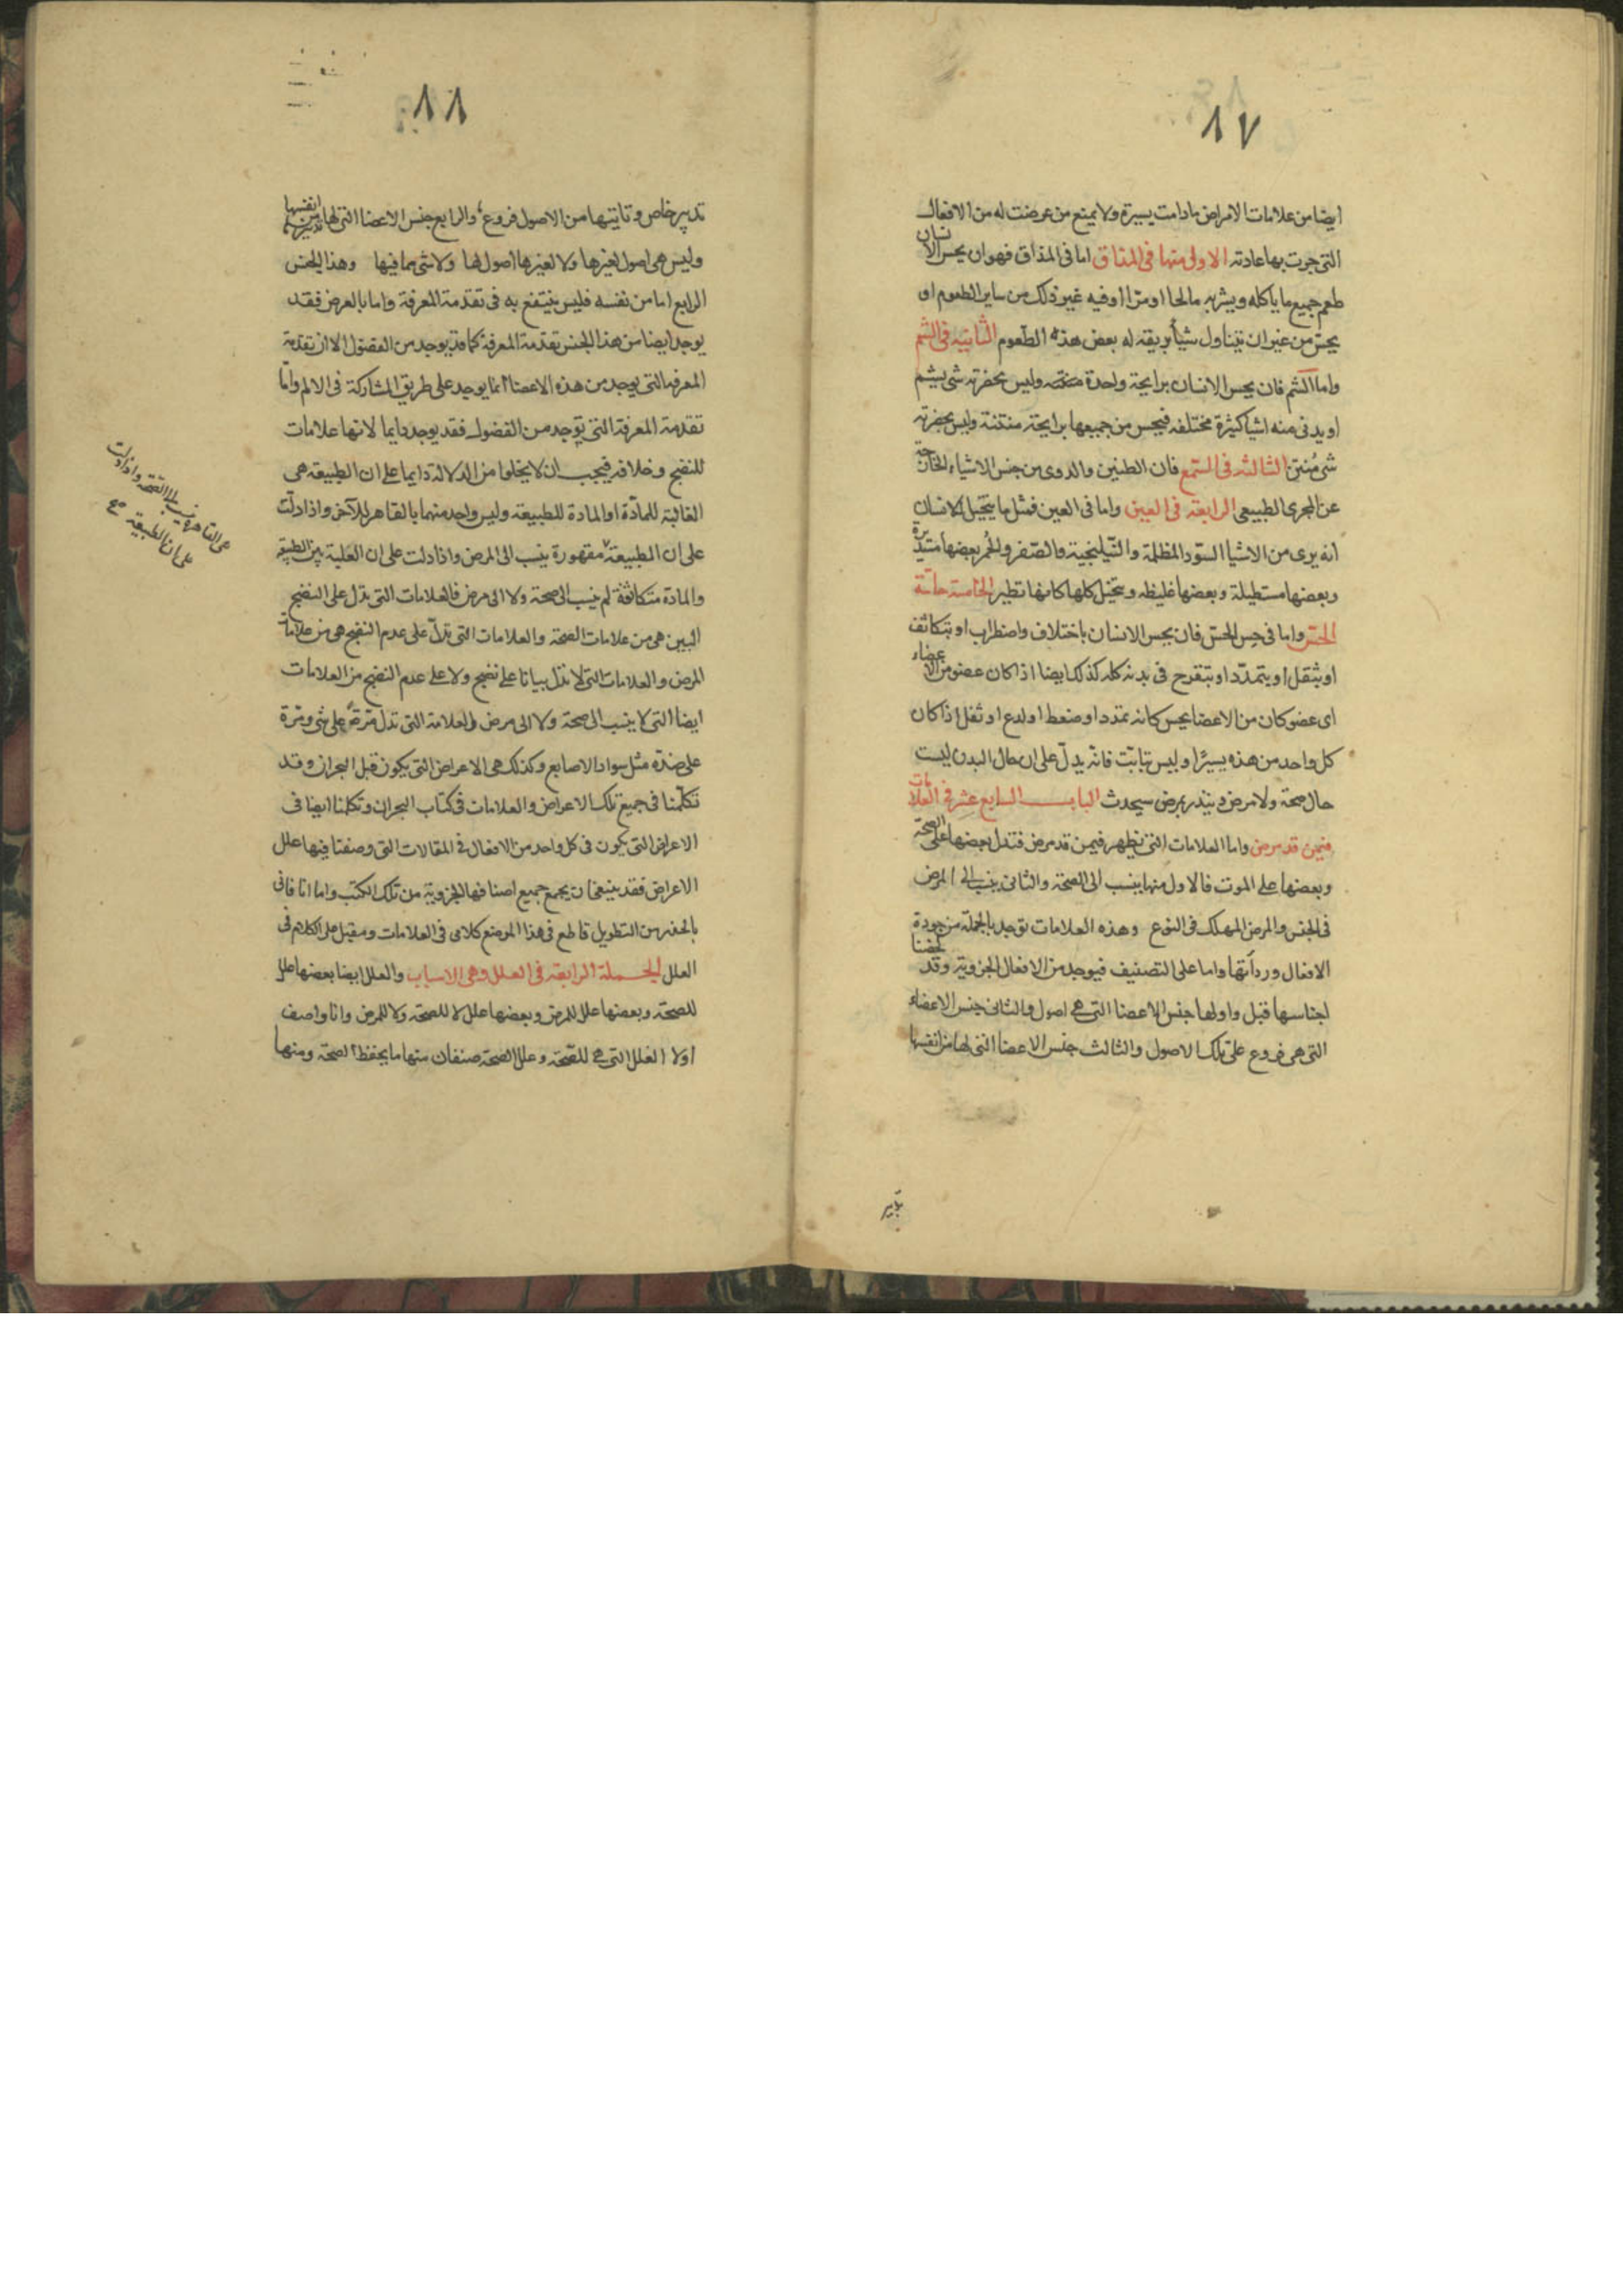 ١٧
ايضا من علامات الامراض مادامت يسيرة ولا يمنع من عرضت له من الافعال
التى جرت بها عادته الاولى منها فى المذاق اما فى المذاق فهو ان يحس الانسان
طعم جميع ما ياكله ويشربه مالحا او مرّا او فيه غير ذلك من ساير الطعوم او
يحسّ من غير ان يتناول شيأ بريقه له بعض هذه الطعوم الثانيه فى الشم
واما الشم فان يحس الانسان برايحة واحدة وليس بحضرته شى يشم
او يدنى منه اشيا كثيرة مختلفه فيحس من جميعها برايحة منتنة وليس بحضرته
شى مُنتِن الثالثه فى السّمع فان الطنين والدوى من جنس الاشياء الخارجة
عن المجرى الطبيعى الرابعة فى العين واما فى العين فمثل ما يتخيل الانسان
انه يرى من الاشيا السّود المظلمة والنّيلنجية والصّفر والحُمر بعضها مستديرة
وبعضها مستطيلة وبعضها غليظه ويتخيل كلها كانها تطير الخامسة حاسّة
الحسّ واما فى حِس الحسّ فان يحس الانسان باختلاف واضطراب او بتكاثف
او بثقل او بتمدّد او بتقرح فى بدنه كله كذلك ايضا اذا كان عضو من الاعضاء
اى عضو كان من الاعضا يحس كانه تمدد او ضغط او لدع او ثقل اذا كان
كل واحد من هذه يسيرًا وليس بثابت فانه يدلّ على ان حال البدن ليست
حال صحة ولا مرض وينذر بمرض سيحدث الباب السابع عشر فى العلامات
فيمن قد مرض واما العلامات التى تظهر فيمن قد مرض فتدل بعضها على الصحّة
وبعضها على الموت فالاول منها ينسب الى الصحّة والثانى ينسب الى المرض
فى الجنس والمرض المهلك فى النوع وهذه العلامات توجد بالجملة من جودة
الافعال وردأتها واما على التصنيف فيوجد من الافعال الجزوية وقد لخصنا
اجناسها قبل واولها جنس الاعضا التى هى اصول والثانى جنس الاعضاء
التى هى فروع على تلك الاصول والثالث جنس الاعضا التى لها من انفسها
تدبير
١٨
تدبير خاص وتاتيها من الاصول فروع والرابع جنس الاعضا التى لها من انفسها تدبيرها
وليس هى اصول لغيرها ولا لغيرها اصول لها ولا شى مما فيها وهذا الجنس
الرابع اما من نفسه فليس ينتفع به فى تقدمة المعرفة واما بالعرض فقد
يوجد ايضا من هذا الجنس تقدمة المعرفة كما قد يوجد من الفضول الا ان تقدمة
المعرفه التى يوجد من هذه الاعضا انما يوجد على طريق المشاركة فى الالم وامّا
تقدمة المعرفة التى توجد من الفضول فقد يوجد دايما لانها علامات
للنضج وخلافه فيجب ان لا يخلوا من الدلالة دايما على ان الطبيعه هى
الغالبة للمادّة او المادة للطبيعة وليس واحد منهما بالقاهر للآخر واذا دلّت
على ان الطبيعة مقهورة ينسب الى المرض واذا دلت على ان الغلبة بين الطبيعة
والمادة متكافئة لم ينسب الى صحة ولا الى مرض فالعلامات التى تدل على النضج
البين هى من علامات الصحة والعلامات التى تدلّ على عدم النضج هى من علامات
المرض والعلامات التى لا تدل بيانا على نضج ولا على عدم النضج من العلامات
ايضا التى لا ينسب الى صحة ولا الى مرض والعلامة التى تدل مرّة على شى ومرة
على ضدّه مثل سواد الاصابع وكذلك هى الاعراض التى يكون قبل البحران وقد
تكلّمنا فى جميع تلك الاعراض والعلامات فى كتاب البحران وتكلمنا ايضا فى
الاعراض التى يكون فى كل واحد من الافعال فى المقالات التى وصفنا فيها علل
الاعراض فقد ينبغى ان يجمع جميع اصنافها الجزوية من تلك الكتب واما انا فانى
بالحذر من التطويل قاطع فى هذا الموضع كلامى فى العلامات ومقبل على الكلام فى
العلل الجملة الرابعة فى العلل وهى الاسباب والعلل ايضا بعضها علل
للصحّة وبعضها علل للمرض وبعضها علل لا للصحّة ولا للمرض وانا واصف
اولا العلل التى هى للصّحّة وعلل الصحّة صنفان منها ما يحفظ الصحّة ومنها
هى القاهرة ينسب الى الصّحّة واذا دلت
على ان الطبيعة صح